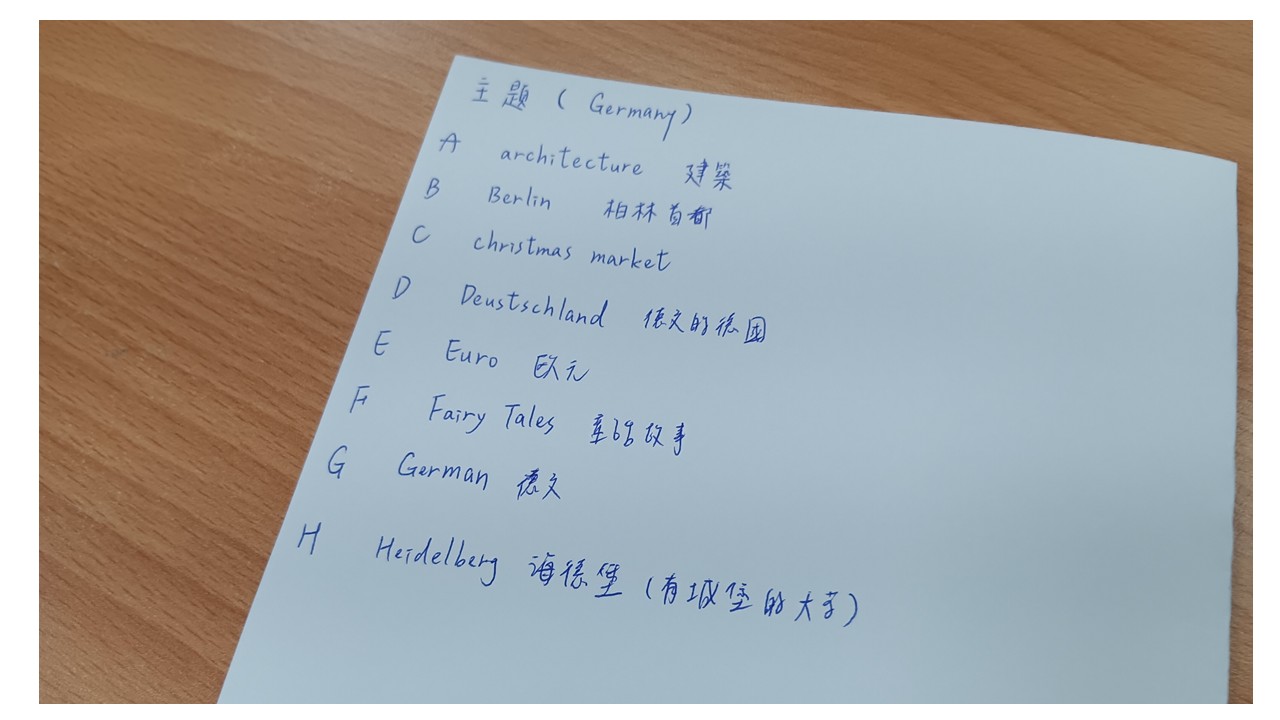 主題 ( Germany )
A architecture 建築
B Berlin 柏林首都
C christmas market
D Deustschland 德文的德國
E Euro 歐元
F Fairy Tales 童話故事
G German 德文
H Heidelberg 海德堡 (有城堡的大学)